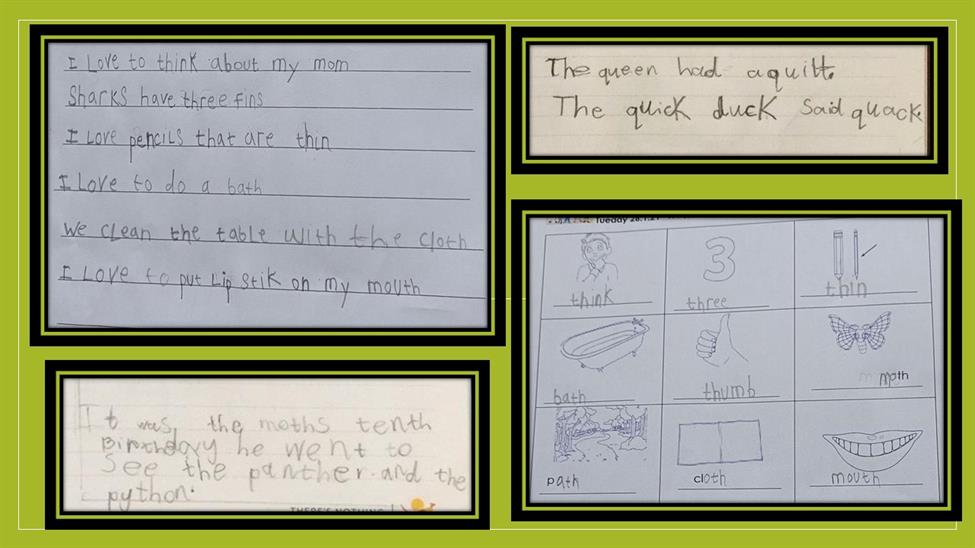 I Love to think about my mom
Sharks have three fins
I Love pencils that are thin
I Love to do a bath
We clean the table with the cloth
I Love to put Lip stik on my mouth
The queen had a quilt.
The quick duck said quack.
It was the moths tenth
Birthday he went to
see the panther and the
python.
THERE'S NOTHING
Tueday
think three thin
bath thumb moth
path cloth mouth